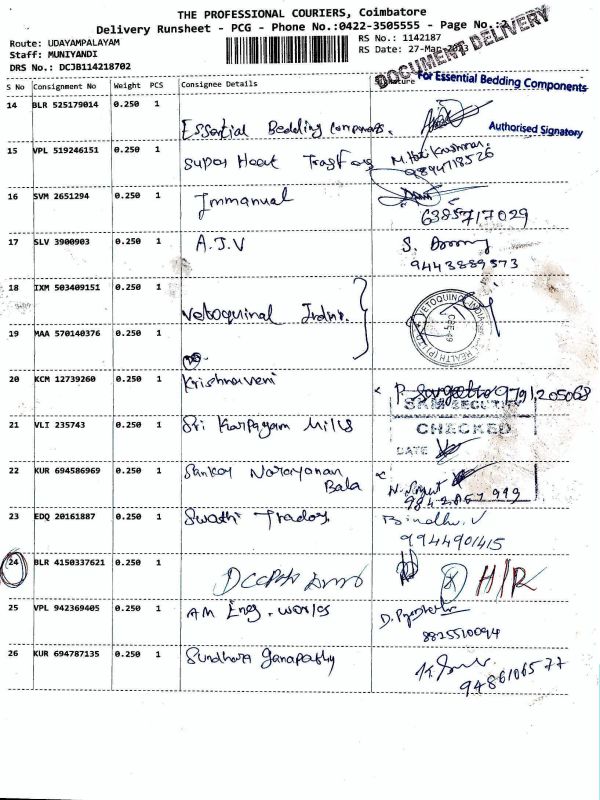 THE PROFESSIONAL COURIERS, Coimbatore
Delivery Runsheet - PCG - Phone No.:0422-3505555 - Page No.:2
Route: UDAYAMPALAYAM
RS No.: 1142187
Staff: MUNIYANDI
RS Date: 27-Mar-2023
DRS No.: DCJB114218702
DOCUMENT DELIVERY
S No Consignment No Weight PCS Consignee Details Signature
For Essential Bedding Components
14 BLR 525179014 0.250 1
Essential Bedding Components.
Authorised Signatory
15 VPL 519246151 0.250 1
Super Heat
M. Hari Krishnan.
9894718526
16 SVM 2651294 0.250 1
Immanual
6385717029
17 SLV 3900903 0.250 1
A.J.V
S.
9443889573
18 IXM 503409151 0.250 1
Vetoquinal
VETOQUINOL INDIA
HEALTH (P) LTD
19 MAA 570140376 0.250 1
20 KCM 12739260 0.250 1
Krishnaveni
P. 9791205068
SKM SECURITY
21 VLI 235743 0.250 1
Sri Karpagam Mills
CHECKED
DATE
22 KUR 694586969 0.250 1
Sankar Narayanan
Bala
9842867999
23 EDQ 20161887 0.250 1
Swathi Trados
Bindhu. V
9944901415
24 BLR 4150337621 0.250 1
H/R
25 VPL 942369405 0.250 1
AM Eng. works
D.
8825510094
26 KUR 694787135 0.250 1
Sundhara Ganapathy
9486106577